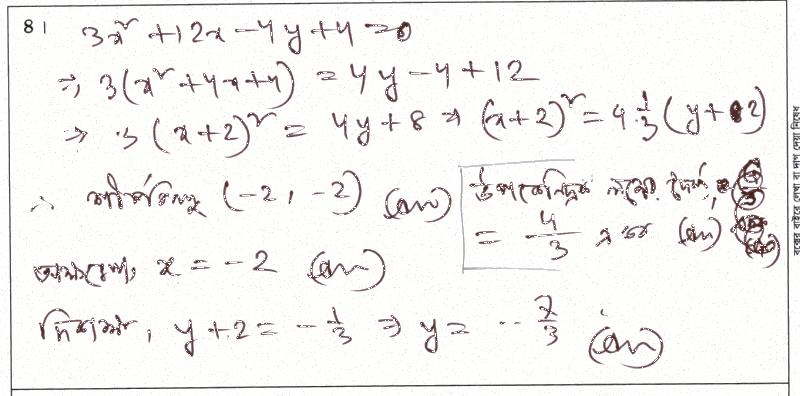 8| 3x² + 12x - 4y + 4 = 0
⇒ 3(x² + 4x + 4) = 4y - 4 + 12
⇒ 3(x+2)² = 4y + 8 ⇒ (x+2)² = 4·1/3 (y + 2)
∴ শীর্ষবিন্দু (-2, -2) (Ans)
উপকেন্দ্রিক লম্বের দৈর্ঘ্য
= 4/3 একক (Ans)
অক্ষরেখা, x = -2 (Ans)
নিয়ামক, y + 2 = -1/3 ⇒ y = -7/3 (Ans)
বক্সের বাইরে লেখা বা দাগ দেয়া নিষেধ